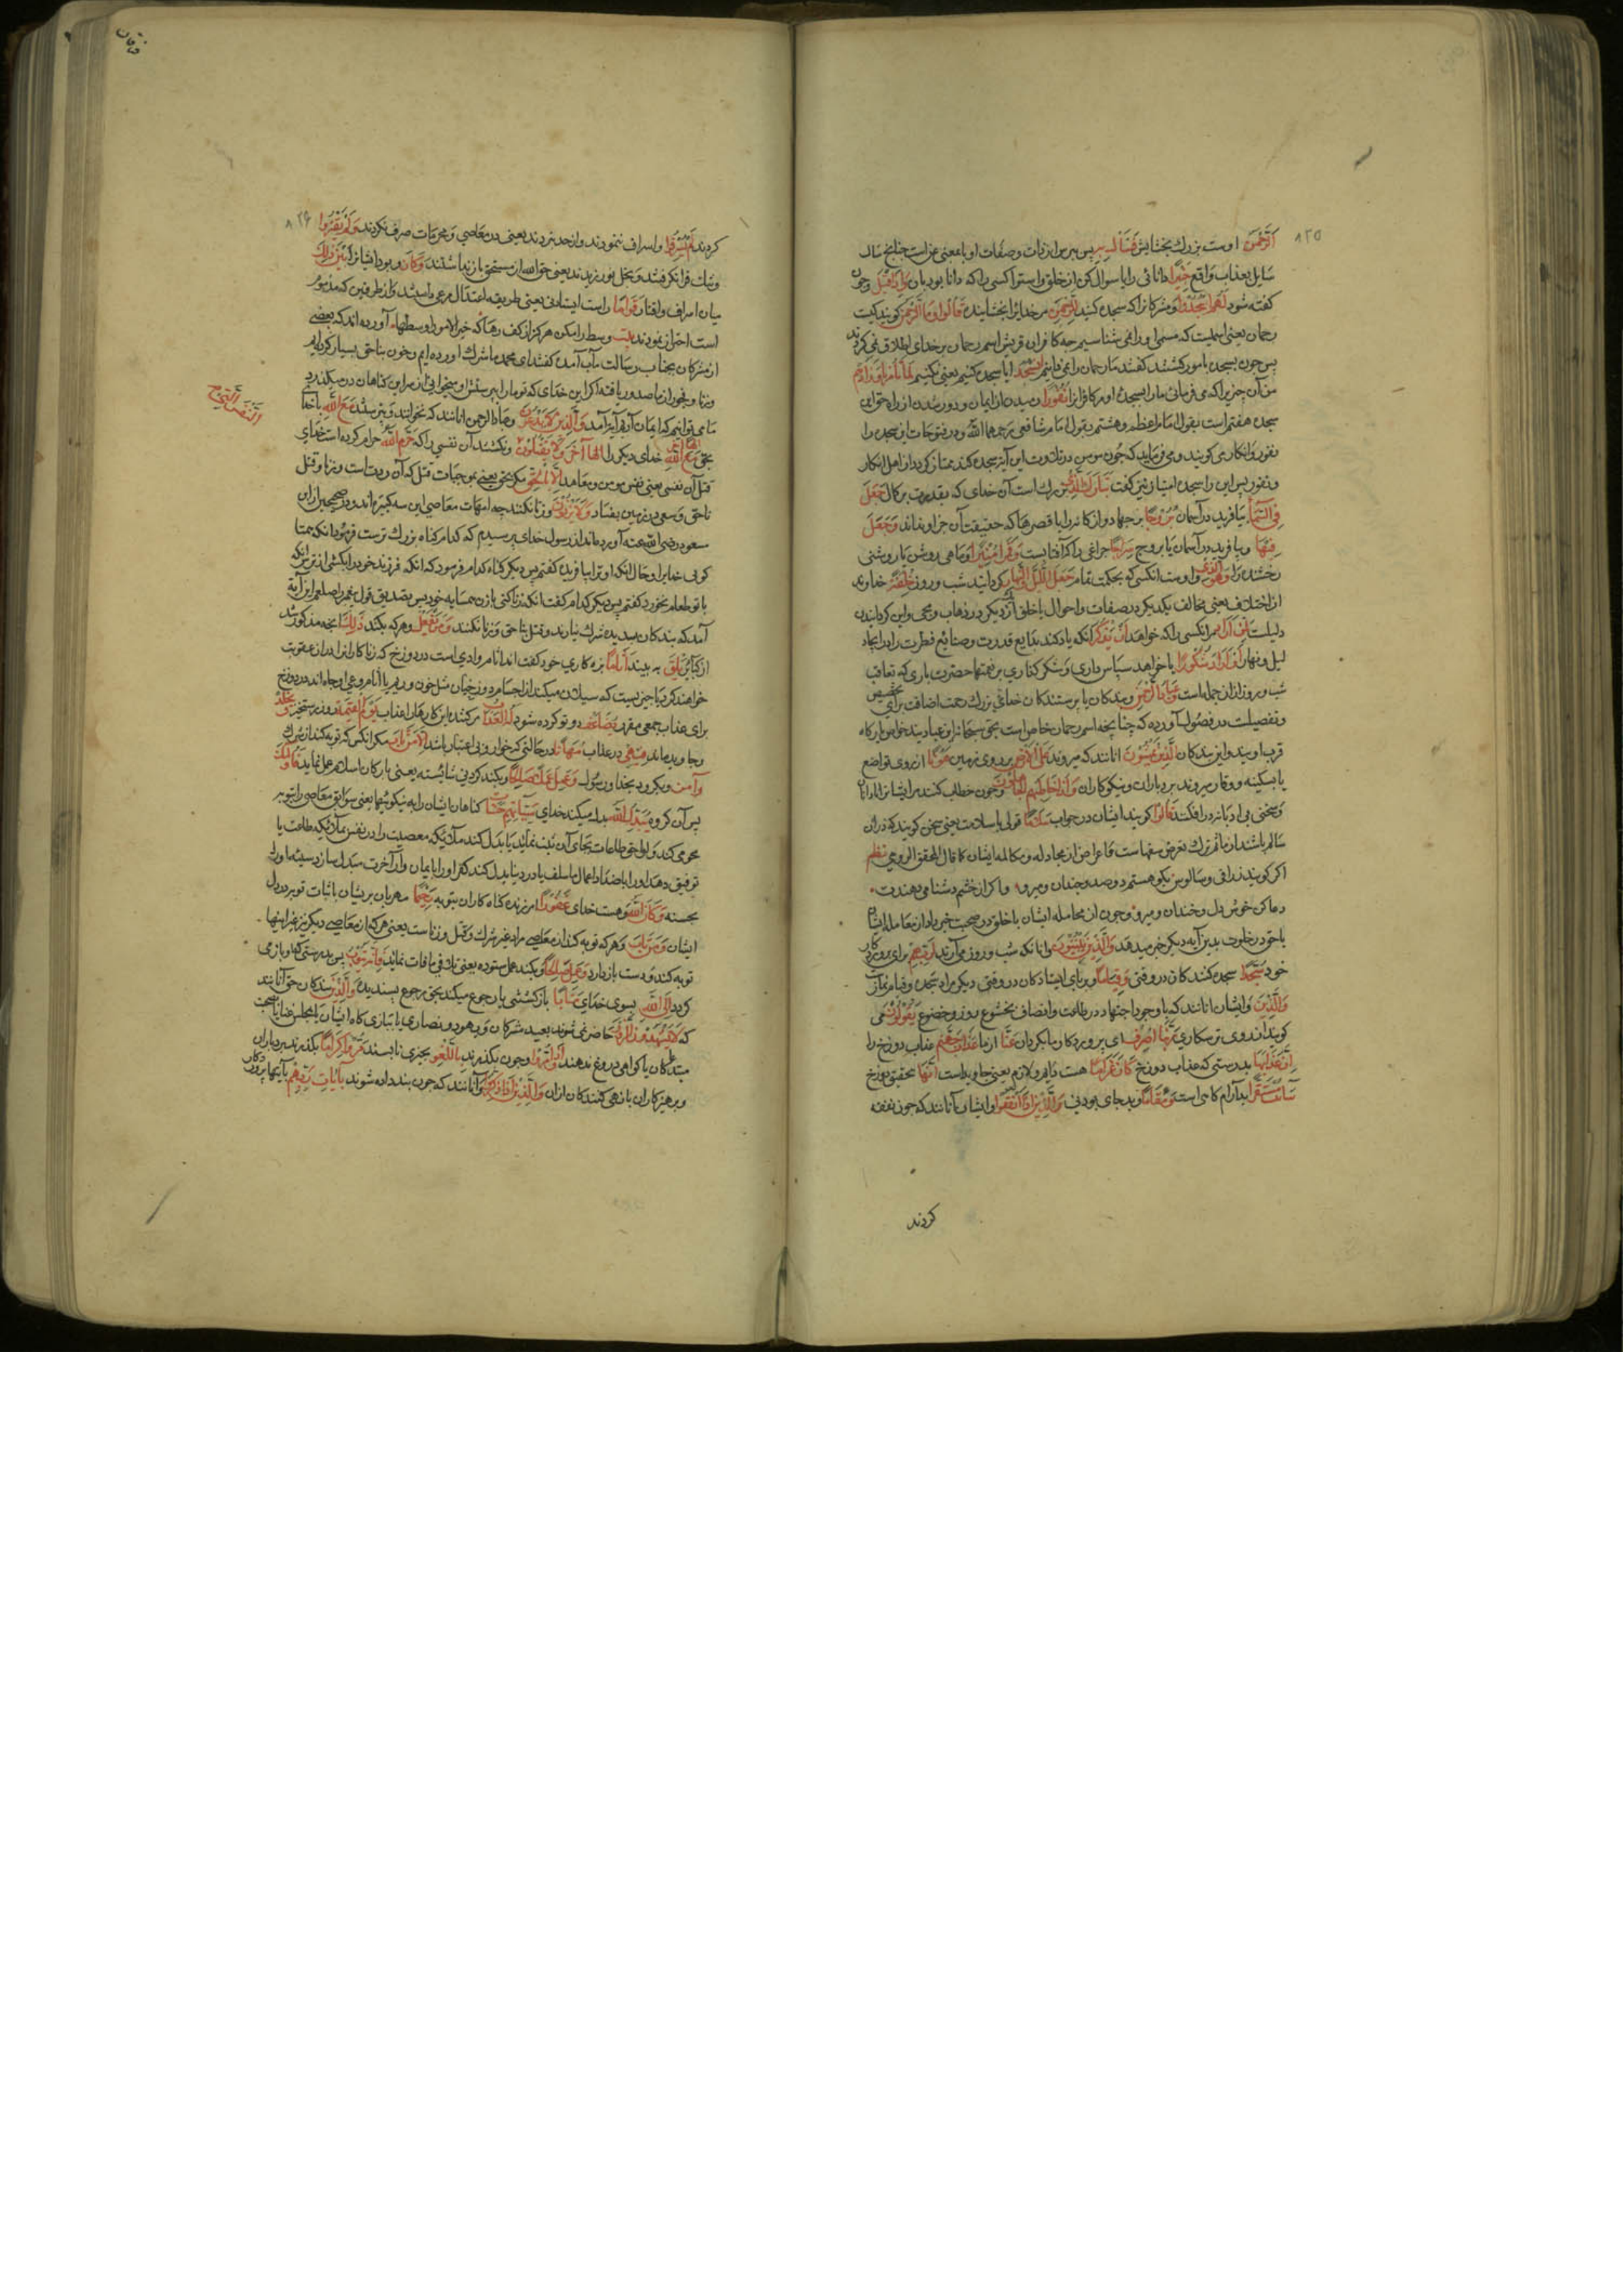 ۸۲۵
اَلرَّحْمٰنُ اوست بزرك بخشایش فَسْئَلْ بِهِ پس بپرس از ذات وصفات او با بمعنی عن است چنانچه سال
سایل بعذاب واقع خَبِیرًا دانائی را یا سوال کن از خلق واستوا کسی را که دانا بود بان وَاِذَا قِیلَ وچون
کفته شود لَهُمُ اسْجُدُوا ومشرکانرا که سجده کنید لِلرَّحْمٰنِ مر خدایرا بخشاینده قَالُوا وَمَا الرَّحْمٰنُ کویند کیست
رحمان یعنی اسمیست که مسمی اورا نمی شناسیم چه کافران قریش اسم رحمان بر خدای اطلاق نمی کردند
پس چون بسجده مامور کشتند کفتند ما رحمان را نمی دانیم اَنَسْجُدُ ایا سجده کنیم یعنی نکنیم لِمَا تَأْمُرُنَا وَزَادَهُمْ
مر آن چیز را که می فرمائی ما را بسجدهٔ او مر کافرانرا نُفُورًا رمیدن از ایمان و دور شدن از راه حق این
سجده هفتم است بقول امام اعظم وهشتم بقول امام شافعی رحمهما الله ودر فتوحات این سجده را
نفور وانکار می کویند ومی فرماید که چون مومن در تلاوت این آیة سجده کند ممتاز کردد از اهل انکار
ونفور پس این را سجده امتیاز نیز کفت تَبَارَكَ الَّذِی بزرك است آن خدای که بقدرت بر کمال جَعَلَ
فِی السَّمَاءِ بیافرید در آسمان بُرُوجًا برجها دوازدکانه را یا قصرها که حقیقت آن جز او نداند وَجَعَلَ
فِیهَا وبیافرید در آسمان یا بروج سِرَاجًا چراغی را که آفتابست وَقَمَرًا مُنِیرًا وماهی روشن یا روشنی
رخشنده را وَهُوَ الَّذِی واوست انکسی که بحکمت تمام جَعَلَ اللَّیْلَ وَالنَّهَارَ کردانید شب و روز خِلْفَةً خداوند
از اختلاف یعنی مخالف یکدیکر در صفات واحوال یا خلف از یکدیکر در ذهاب ومجی واین کردانیدن
دلیلست لِمَنْ اَرَادَ مر انکسی را که خواهد اَنْ یَذَّكَّرَ انکه یاد کند بدایع قدرت وصنایع فطرت را در ایجاد
لیل ونهار اَوْ اَرَادَ شُكُورًا یا خواهد سپاس داری وشکر کذاری بر نعمتها حضرت باری که تعاقب
شب و روز از ان جمله است وَعِبَادُ الرَّحْمٰنِ وبندکان یا پرستندکان خدای بزرك رحمت اضافت برای تخصیص
وتفضیلست در فصول آورده که چنانچه اسم رحمان خاص است بحق سبحانه این نوع عباد نیز خواص بارکاه
قرب اویند واین بندکان الَّذِینَ یَمْشُونَ انانند که میروند عَلَى الْاَرْضِ بر روی زمین هَوْنًا از روی تواضع
یا بسکینه و وقار میروند بردباران ونیکوکاران وَاِذَا خَاطَبَهُمُ الْجَاهِلُونَ وچون خطاب کنند مر ایشانرا نادانان
وسخنی بی ادبانه در افکنند قَالُوا کویند ایشان در جواب سَلَامًا قولی با سلامت یعنی سخن کویند که دران
سالم باشند از ماثم ترك تعرض سفهاست واعراض از مجادله ومکالمه ایشان کما قال المحقق الرومی نظم
اکر کویند زراقی وسالوس بکو هستم دو صد چندان ومیرو وکر از خشم دشنامی دهندت
دعا کن خوش دل وخندان ومیرو وچون از محامله ایشان با خلق در صحبت خبر داد از معامله ایشان
با حق در خلوت بدین آیه دیکر خبر میدهد وَالَّذِینَ یَبِیتُونَ وانانکه شب بروز می آرند لِرَبِّهِمْ برای پروردکار
خود سُجَّدًا سجده کنندکان در وقتی وَقِیَامًا وبر پای ایستادکان در وقتی دیکر مراد سجده وقیام نمازست
وَالَّذِینَ وایشان انانند که با وجود اجتهاد در طاعت واتصاف بخشوع و خضوع یَقُولُونَ می
کویند از روی ترسکاری رَبَّنَا اصْرِفْ ای پروردکار ما بکردان عَنَّا از ما عَذَابَ جَهَنَّمَ عذاب دوزخ را
اِنَّ عَذَابَهَا بدرستی که عذاب دوزخ كَانَ غَرَامًا هست دایم ولازم یعنی جاوید است اِنَّهَا بتحقیق دوزخ
سَاءَتْ مُسْتَقَرًّا بد آرام کاهی است وَمُقَامًا وبد جای بودنی وَالَّذِینَ اِذَا اَنْفَقُوا وایشان آنانند که چون نفقه
کردند
۸۲۶
کردند لَمْ یُسْرِفُوا واسراف ننمودند واز حد نبردند یعنی در معاصی ومحرمات صرف نکردند وَلَمْ یَقْتُرُوا
وتنك فرا نکرفتند وبخل نورزیدند یعنی حق الله از مستحق باز نداشتند وَكَانَ وبود انفاق ایشانرا بَیْنَ ذٰلِكَ
میان اسراف واقتار قَوَامًا راست ایستادنی یعنی طریقه اعتدال مرعی داشتند واز طرفین که مذموم
است احتراز نمودند بیت وسط را مکن هرکز از کف رها که خیر الامور اوسطها آورده اند که بعضی
از مشرکان بجناب رسالت مآب آمدند کفتند ای محمد ما شرك آورده ایم وخون بناحق بسیار کرده ایم
وزنا وفجور از ما صدور یافته اکر این خدای که تو ما را بپرستش او میخوانی از سر این کناهان در میکذرد
ما می توانیم که ایمان آریم آیه آمد وَالَّذِینَ لَا یَدْعُونَ وعباد الرحمن انانند که نخوانند ونپرستند مَعَ اللّٰهِ با خدا
النفس التی ح
بحق اِلٰهًا اٰخَرَ خدای دیکر را وَلَا یَقْتُلُونَ ونکشند آن نفسی را که حَرَّمَ اللّٰهُ حرام کرده است خدای
قتل آن نفس یعنی نفس مومن ومعاهد اِلَّا بِالْحَقِّ مکر بحق یعنی بموجبات قتل که آن ردت است وزنا وقتل
ناحق وسعی در زمین بفساد وَلَا یَزْنُونَ وزنا نکنند چه امهات معاصی این سه کبیره اند ودر صحیحین از ابن
مسعود رضی الله عنه آورده اند از رسول خدای پرسیدم که کدام کناه بزرك ترست فرمود انکه همتا
کویی خدایرا وحال انکه او ترا بیافرید کفتم پس دیکر کناه کدام فرمود که انکه فرزند خود را بکشی از ترس انکه
با تو طعام بخورد کفتم پس دیکر کدام کفت انکه زنا کنی با زن همسایه خود پس بتصدیق قول پیغمبر صلعم این آیه
آمد که بندکان پسندیده شرك نیارند وقتل ناحق وزنا نکنند وَمَنْ یَفْعَلْ وهر که بکند ذٰلِكَ انچه مذکور شد
از کبائر یَلْقَ به بیند اَثَامًا بزه کاری خود کفته اند اثام وادی است در دوزخ که زناکارانرا در ان عقوبت
خواهند کرد یا چیزیست که سیلان میکند از اجسام دوزخیان مثل خون وریم یا اثام وغی دو چاه اند در دوزخ
برای عذاب جمعی مقرر یُضَاعَفْ دو تو کرده شود لَهُ الْعَذَابُ مر کننده این کارها را عذاب یَوْمَ الْقِیٰمَةِ روز رستخیز وَیَخْلُدْ
وجاوید ماند فِیهِ در عذاب مُهَانًا در حالتی که خوار وبی اعتبار باشد اِلَّا مَنْ تَابَ مکر انکس که توبه کند از شرك
وَاٰمَنَ وبکرود بخدا ورسول وَعَمِلَ عَمَلًا صَالِحًا وبکند کردنی شایسته یعنی بارکان اسلام عمل نماید فَاُولٰئِكَ
پس آن کروه یُبَدِّلُ اللّٰهُ بدل میکند خدای سَیِّاٰتِهِمْ حَسَنَاتٍ کناهان ایشان را به نیکوئیها یعنی سوابق معاصی را بتوبه
محو می کند ولواحق طاعات بجای آن ثبت نماید یا بدل کند ملکه معصیت را در نفس بملکه طاعت یا
توفیق دهد او را باضداد اعمال ما سلف یا در دنیا بدل کند کفر اورا بایمان ودر آخرت مبدل سازد سیئه اورا
بحسنه وَكَانَ اللّٰهُ وهست خدای غَفُورًا امرزنده کناه کاران بتوبه رَحِیمًا مهربان بر ایشان باثبات توبه در دل
ایشان وَمَنْ تَابَ وهر که توبه کند از معاصی مراد غیر شرك وقتل وزناست یعنی هر که از معاصی دیکر نیز غیر اینها
توبه کند ودست باز دارد وَعَمِلَ صَالِحًا وبکند عمل ستوده یعنی تلافی مافات نماید فَاِنَّهُ یَتُوبُ پس بدرستی که او باز می
کردد اِلَى اللّٰهِ بسوی خدای مَتَابًا بازکشتنی یا رجوع میکند بحق رجوع پسندیده وَالَّذِینَ بندکان حق آنانند
که لَا یَشْهَدُونَ الزُّورَ حاضر نمی شوند بعید مشرکان ویهود ونصاری یا ببازی کاه ایشان یا بمجلس غنا یا صحبت
مبتدعان یا کواهی دروغ ندهند وَاِذَا مَرُّوا وچون بکذرند بِاللَّغْوِ بچیزی ناپسند مَرُّوا كِرَامًا بکذرند بردباران
وپرهیزکاران یا نهی کنندکان ازان وَالَّذِینَ اِذَا ذُكِّرُوا وآنانند که چون پند داده شوند بِاٰیَاتِ رَبِّهِمْ بآیتهاء پروردکار